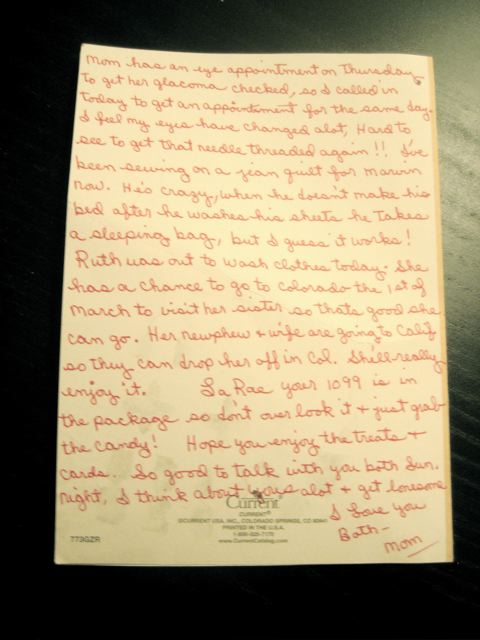 Mom has an eye appointment on Thursday
to get her glacoma checked, so I called in
today to get an appointment for the same day.
I feel my eyes have changed alot, Hard to
see to get that needle threaded again!! I've
been sewing on a jean quilt for Marvin
now. He's crazy, when he doesn't make his
bed after he washes his sheets he takes
a sleeping bag, but I guess it works!
Ruth was out to wash clothes today. She
has a chance to go to Colorado the 1st of
March to visit her sister so thats good she
can go. Her newphew + wife are going to Calif
so they can drop her off in Col. She'll really
enjoy it. La Rae your 1099 is in
the package so don't over look it + just grab
the candy! Hope you enjoy the treats +
cards. So good to talk with you both Sun.
night, I think about you alot + get lonesome
I Love You
Both-
Mom
Current
CURRENT®
©CURRENT USA, INC., COLORADO SPRINGS, CO 80941
PRINTED IN THE U.S.A.
www.CurrentCatalog.com
773GZR